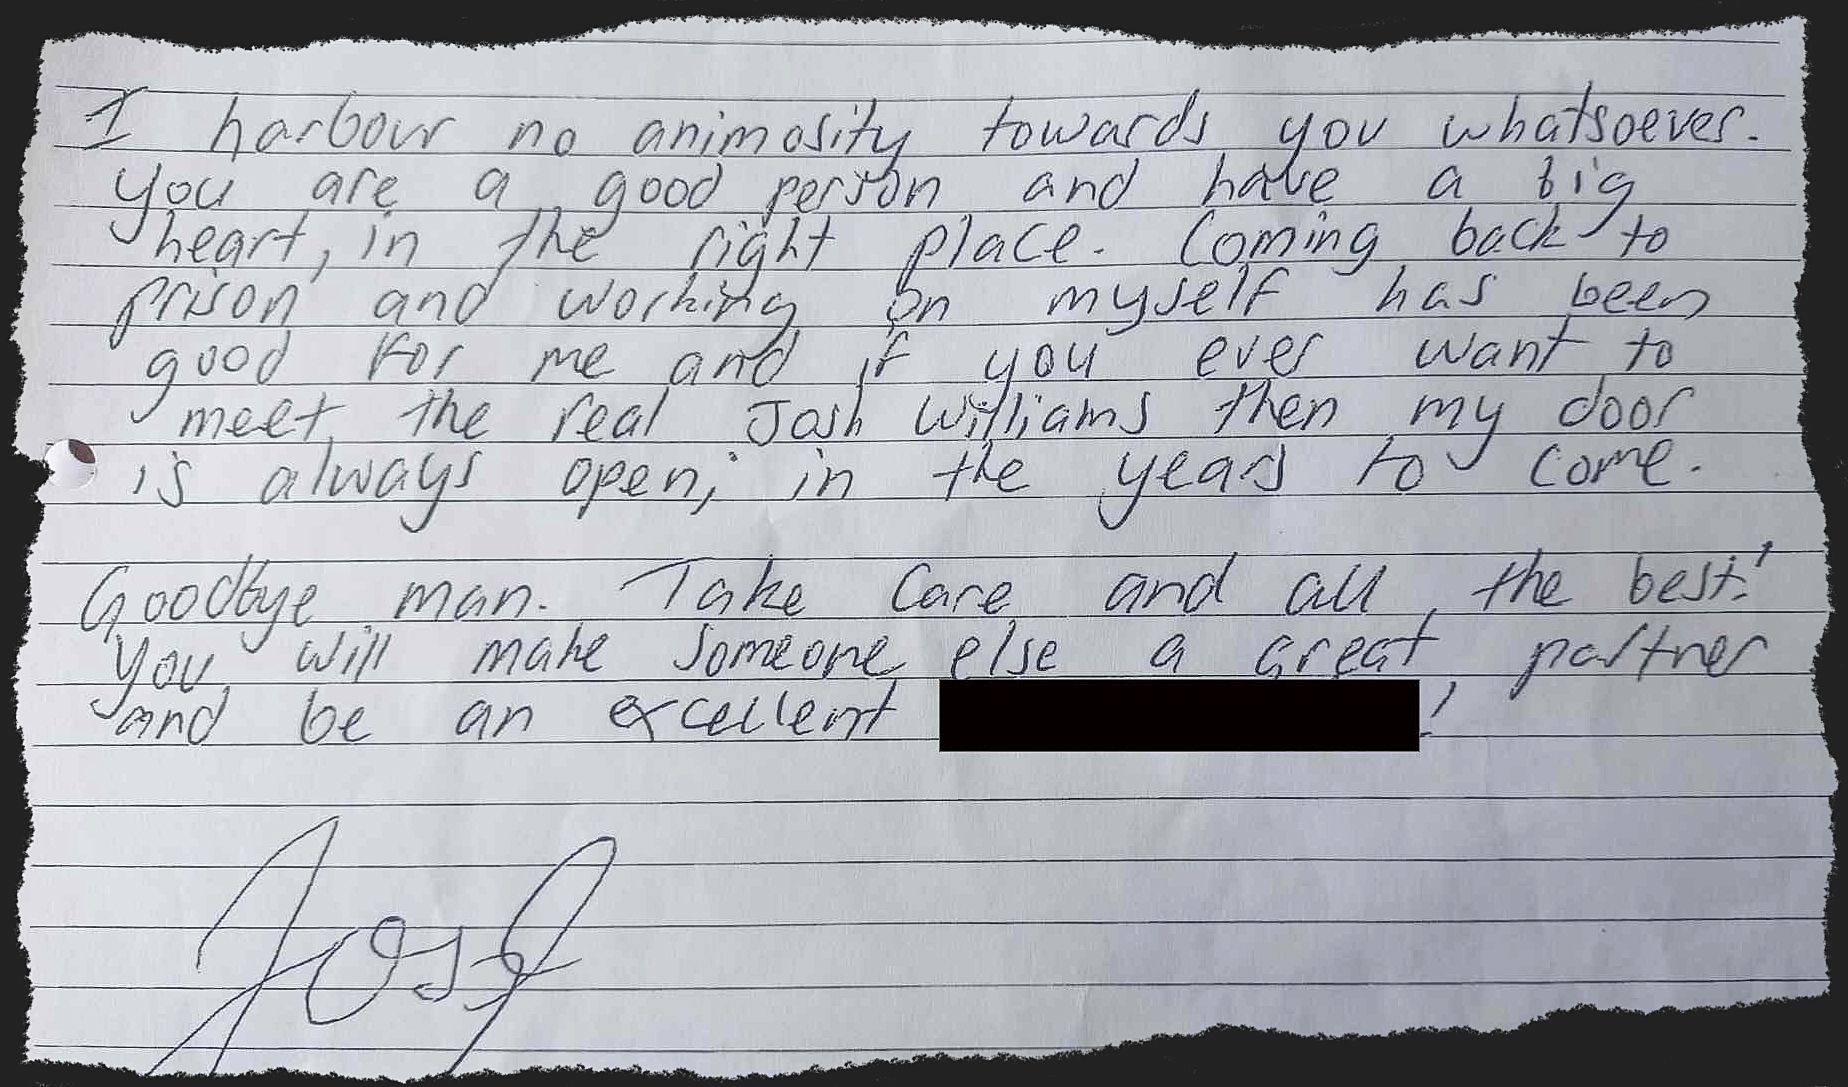 I harbour no animosity towards you whatsoever.
You are a good person and have a big
heart, in the right place. Coming back to
prison and working on myself has been
good for me and if you ever want to
meet the real Josh Williams then my door
is always open; in the years to come.
Goodbye man. Take care and all the best!
You will make someone else a great partner
and be an excellent !
Josh